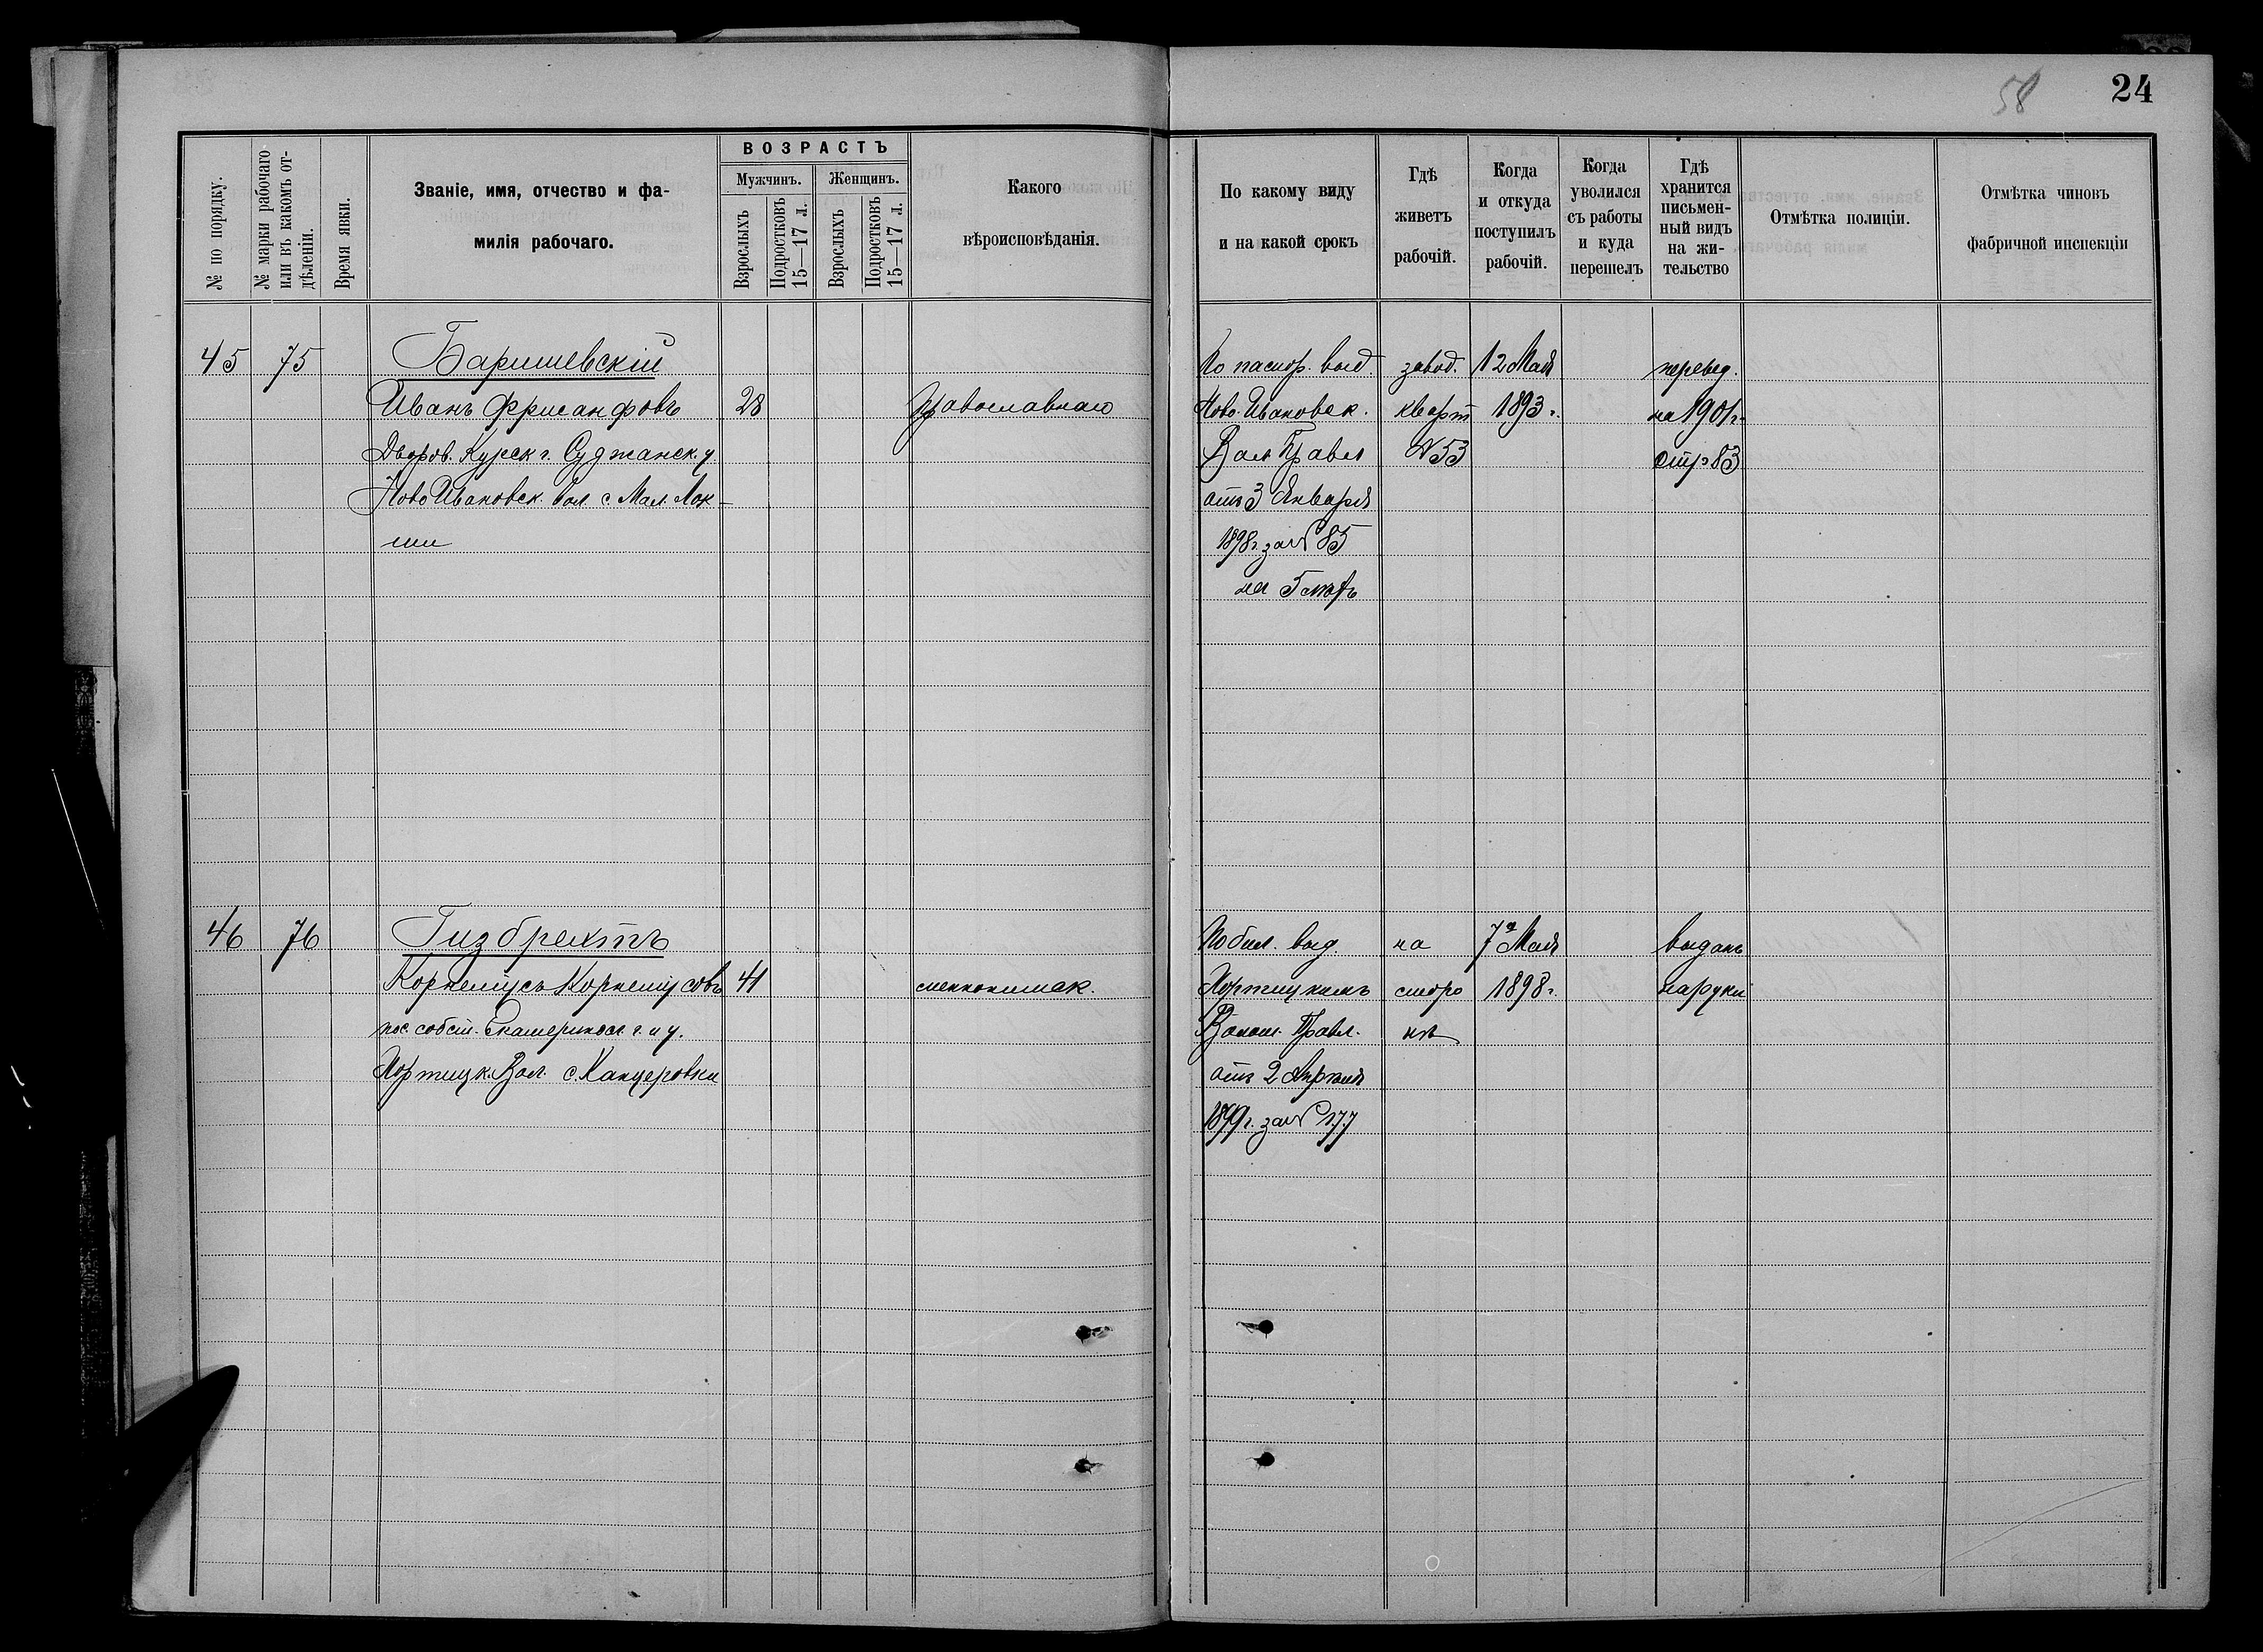 58
24
№ по порядку.
№ марки рабочаго или въ какомъ отдѣленіи.
Время явки.
Званіе, имя, отчество и фа-
милія рабочаго.
ВОЗРАСТЪ
Мужчинъ.
Женщинъ.
Взрослыхъ
Подростковъ 15—17 л.
Взрослыхъ
Подростковъ 15—17 л.
Какого
вѣроисповѣданія.
По какому виду
и на какой срокъ
Гдѣ
живетъ
рабочій.
Когда
и откуда
поступилъ
рабочій.
Когда
уволился
съ работы
и куда
перешелъ
Гдѣ
хранится
письмен-
ный видъ
на жи-
тельство
Отмѣтка полиціи.
Отмѣтка чиновъ
фабричной инспекціи
45 75 Баришевскій
Иванъ 28 Православнаго
Дворов. Курск г. Суджанск. у.
Ново Ивановск. вол. с. Мал. Лок-
ни
По паспор. выд
Ново-Ивановск.
Вол Правл
отъ 3 Января
1898 г. за № 85
на 5 лѣтъ
завод.
кварт
№ 53
12 Мая
1893 г.
перевед.
на 1901 г.
стр 83
46 76 Гизбрехтъ
Корнеліусъ Корнеліусовъ 41 меннонитск.
пос. собст. Екатеринос. г. и у.
Хортицк. Вол. с. Канцеровки
По бил. выд.
Хортицкимъ
Волост. Правл.
отъ 2 Апрѣля
1899 г. за № 177
на
сторо
нѣ
7го Мая
1898 г.
выданъ
на руки